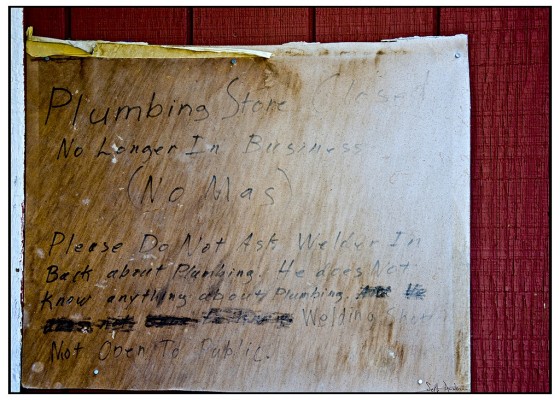 Plumbing Store Closed
No Longer In Business
(No Mas)
Please Do Not Ask Welder In
Back about Plumbing. He does Not
Know anything about Plumbing.
Welding Shop
Not Open To Public.